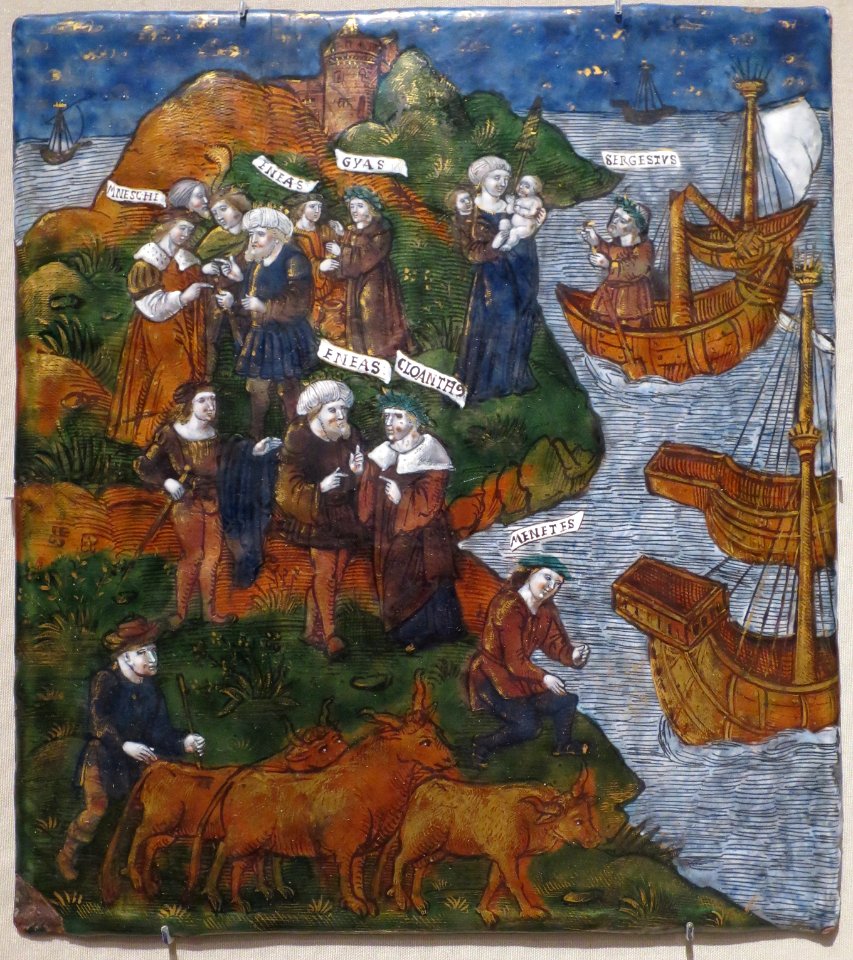 MNESCHI
ENEAS
GYAS
SERGESTVS
ENEAS
CLOANTH9
MENETES